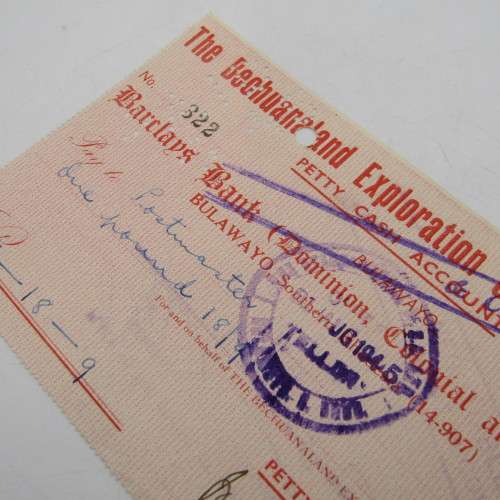 The Bechuanaland Exploration
PETTY CASH ACCOUNT
No. 322
BULAWAYO
Barclays Bank (Dominion, Colonial a
BULAWAYO Southern (14-907)
Pay to Postmaster
One pound 18/
-18-9
AUG 1945
TELLER
For and on behalf of THE BECHUANALAND EX
PETTY